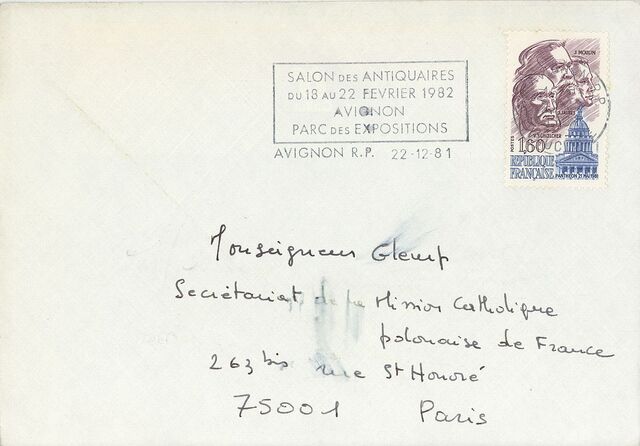 SALON DES ANTIQUAIRES
DU 18 AU 22 FEVRIER 1982
AVIGNON
PARC DES EXPOSITIONS
AVIGNON R.P. 22-12-81
J. MOULIN
J. JAURES
V. SCHOELCHER
POSTES 1,60
REPUBLIQUE
FRANÇAISE
PANTHEON 21 MAI 1981
Monseigneur Glemp
Secrétariat de la Mission Catholique
polonaise de France
263 bis rue St Honoré
75001 Paris